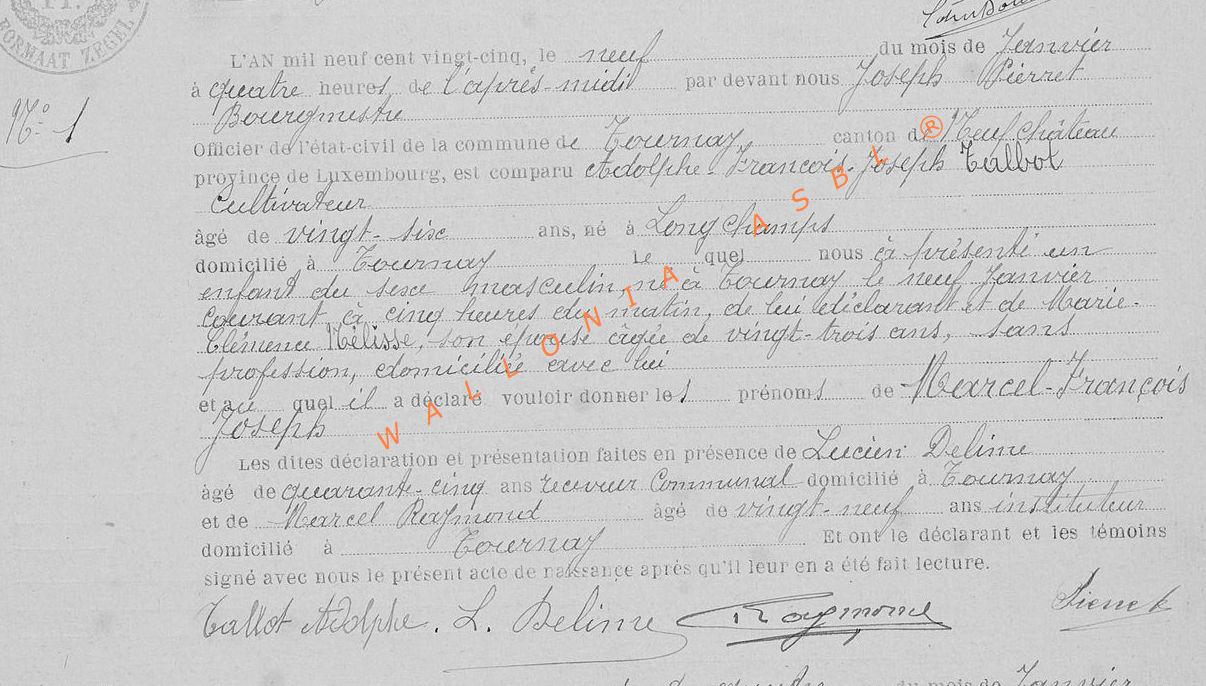 FORMAAT ZEGEL
L'AN mil neuf cent vingt-cinq, le neuf du mois de Janvier
à quatre heures de l'après-midi par devant nous Joseph Pierret
Bourgmestre
N° 1
Officier de l'état-civil de la commune de Tournay canton de Neufchâteau
province de Luxembourg, est comparu Adolphe-François-Joseph Talbot
cultivateur
âgé de vingt-six ans, né à Longchamps
domicilié à Tournay Le quel nous à présenté un
enfant du sexe masculin, né à Tournay le neuf Janvier
courant, à cinq heures du matin, de lui déclarant et de Marie-
Clémence Mélisse, son épouse âgée de vingt-trois ans, sans
profession, domiciliée avec lui
et au quel il a déclaré vouloir donner les prénoms de Marcel-François
Joseph
Les dites déclaration et présentation faites en présence de Lucien Delime
âgé de quarante-cinq ans receveur Communal domicilié à Tournay
et de Marcel Raymond âgé de vingt-neuf ans instituteur
domicilié à Tournay Et ont le déclarant et les témoins
signé avec nous le présent acte de naissance après qu'il leur en a été fait lecture.
Talbot Adolphe. L. Delime Raymond Pierret
du mois de Janvier
WALLONIA ASBL ®